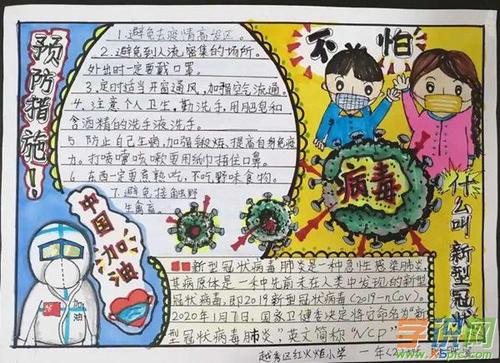 预防措施!
1.避免去疫情高发区。
2.避免到人流密集的场所。
外出时一定要戴口罩。
3.定时适当开窗通风,加强空气流通。
4.注意个人卫生,勤洗手,用肥皂和
含酒精的洗手液洗手。
5.防止自己生病,加强锻炼,提高自身免疫
力。打喷嚏咳嗽要用纸巾捂住口鼻。
6.东西一定要煮熟,不吃野味食物。
7.避免接触野
生禽畜。
不怕
病毒
什么叫新型冠状
中国加油
新型冠状病毒肺炎是一种急性感染肺炎,
其病原体是一种先前未在人类中发现的新型
冠状病毒,即2019新型冠状病毒(2019-nCoV)。
2020年1月7日,国家卫健委决定将它命名为"新
型冠状病毒肺炎"英文简称"NCP"
越秀区红火炬小学 一年
学识网